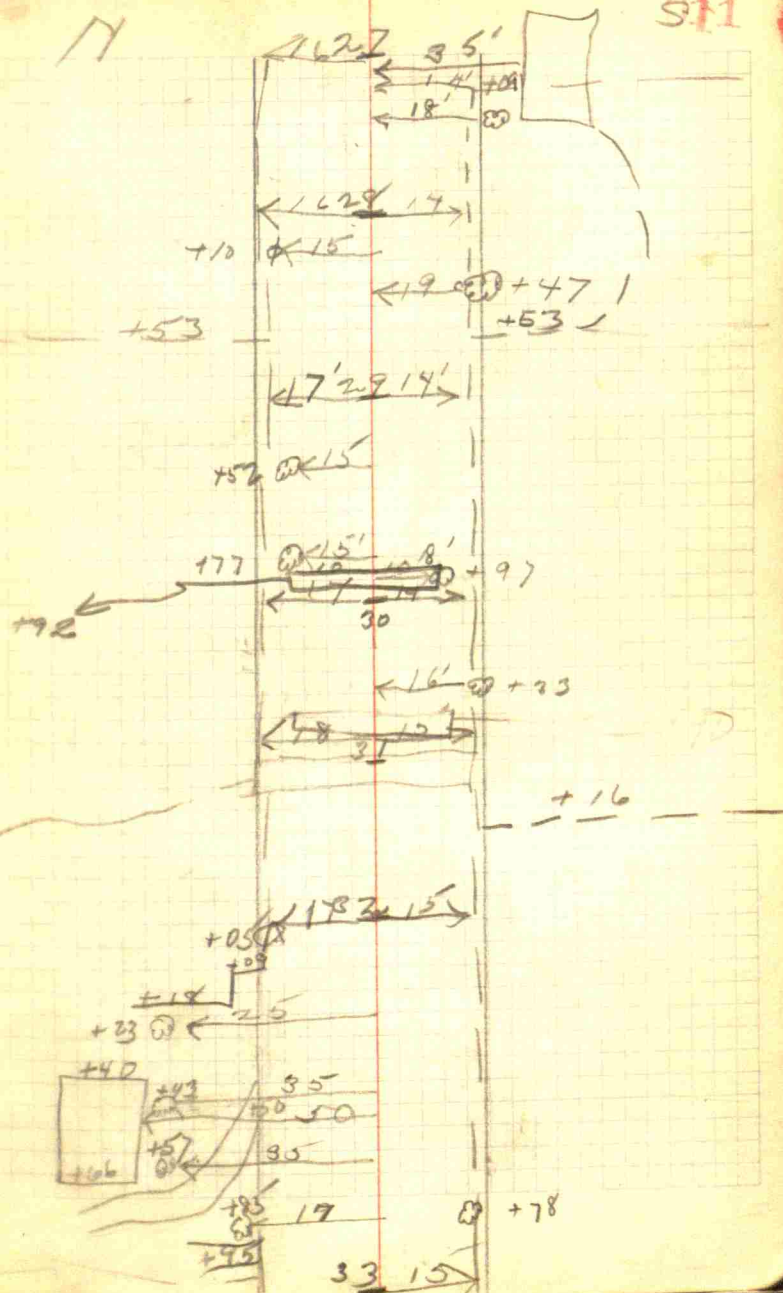 N S11
16 27 35'
14' +09
18'
16 28 14
+10 15
19 +47
+53 +53
17' 29 14'
+52 15'
15' 18'
+77 10 10 +97
17 14
+92 30
16' +23
18 15
31
+16
17 32 15
+05
+09
+18
+23 25
+40
+43 35
50 50
+57
+66 35
+85 19 +78
+95
33 15